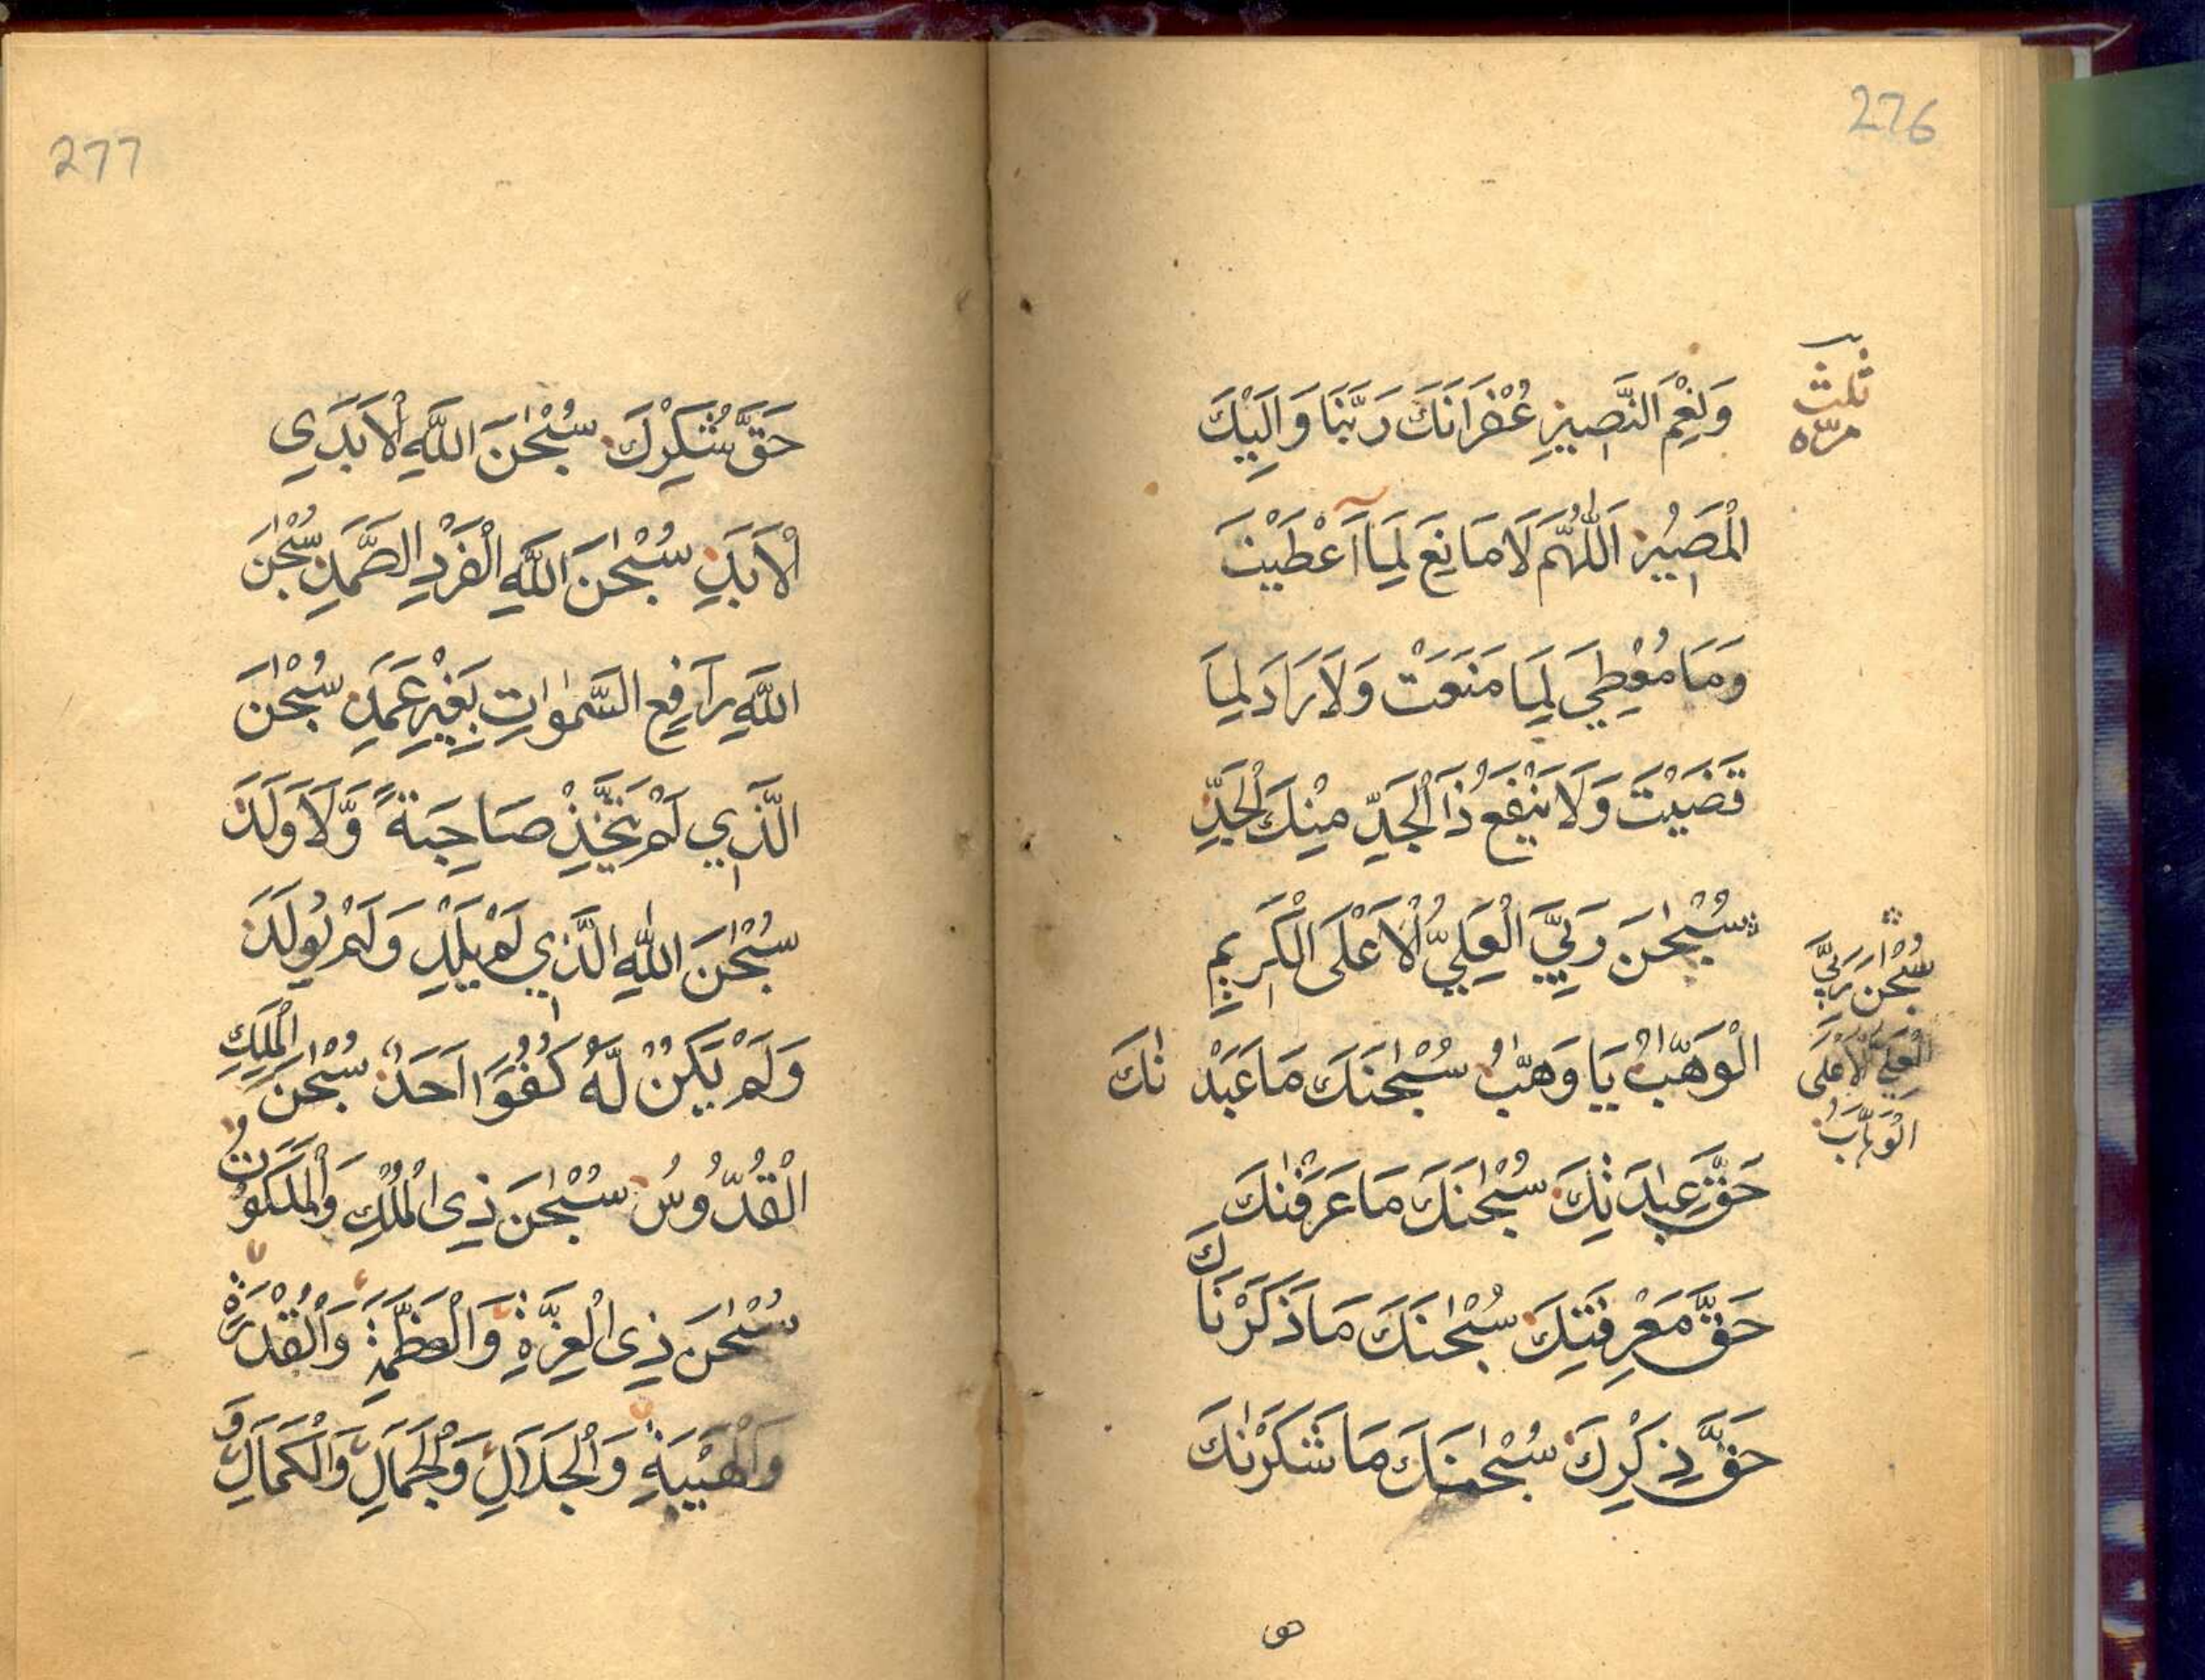 276
ثلث
مرّه
وَنِعْمَ النَّصِيرِ غُفْرَانَكَ رَبَّنَا وَاِلَيْكَ
الْمَصِيْرُ اَللّٰهُمَّ لَا مَانِعَ لِمَا اَعْطَيْتَ
وَمَا مُعْطِيَ لِمَا مَنَعْتَ وَلَا رَادَ لِمَا
قَضَيْتَ وَلَا يَنْفَعُ ذَا الْجَدِّ مِنْكَ الْجَدِّ
سُبْحٰنَ رَبِّيَ الْعَلِيِّ الْاَعْلَى الْكَرِيمِ
سُبْحٰنَ رَبِّيَ
الْعَلِيِّ الْاَعْلَى
الْوَهَّابُ
الْوَهَّٰبُ يَا وَهَّٰبُ سُبْحٰنَكَ مَا عَبَدْ نٰكَ
حَقَّ عِبٰدَتِكَ سُبْحٰنَكَ مَا عَرَفْنٰكَ
حَقَّ مَعْرِفَتِكَ سُبْحٰنَكَ مَا ذَكَرْنَاكَ
حَقَّ ذِكْرِكَ سُبْحٰنَكَ مَا شَكَرْنٰكَ
277
حَقَّ شُكْرِكَ سُبْحٰنَ اللّٰهِ الْاَبَدِي
الْاَبَدِ سُبْحٰنَ اللّٰهِ الْفَرْدِ الصَّمَدِ سُبْحٰنَ
اللّٰهِ رَافِعِ السَّمٰوٰتِ بِغَيْرِ عَمَدِ سُبْحٰنَ
الَّذِي لَمْ يَتَّخِذْ صَاحِبَةً وَّلَا وَلَدَ
سُبْحٰنَ اللّٰهِ الَّذِي لَمْ يَلِدْ وَلَمْ يُولَدْ
وَلَمْ يَكُنْ لَّهُ كُفُوًا اَحَدٌ سُبْحٰنَ الْمَلِكِ
الْقُدُّوسُ سُبْحٰنَ ذِي الْمُلْكِ وَالْمَلَكُوتُ
سُبْحٰنَ ذِي الْعِزَّةِ وَالْعَظَمَةِ وَالْقُدْرَةِ
وَالْهَيْبَةِ وَالْجَلَالِ وَالْجَمَالِ وَالْكَمَالِ وَ